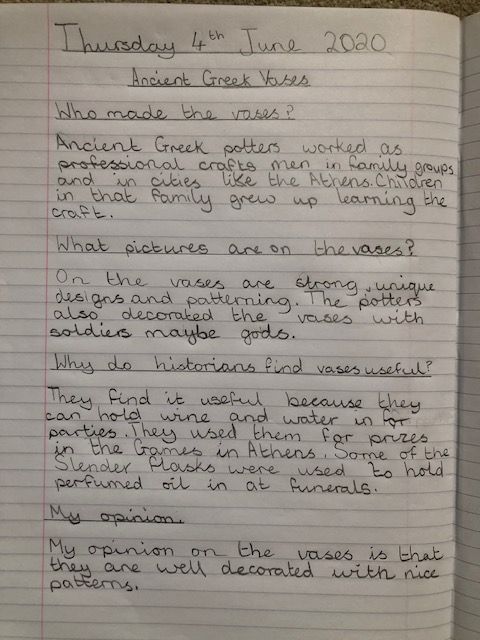 Thursday 4th June 2020
Ancient Greek Vases
Who made the vases?
Ancient Greek potters worked as
professional crafts men in family groups
and in cities like the Athens. Children
in that family grew up learning the
craft.
What pictures are on the vases?
On the vases are strong, unique
designs and patterning. The potters
also decorated the vases with
soldiers maybe gods.
Why do historians find vases useful?
They find it useful because they
can hold wine and water in for
parties. They used them for prizes
in the Games in Athens. Some of the
Slender flasks were used to hold
perfumed oil in at funerals.
My opinion.
My opinion on the vases is that
they are well decorated with nice
patterns.